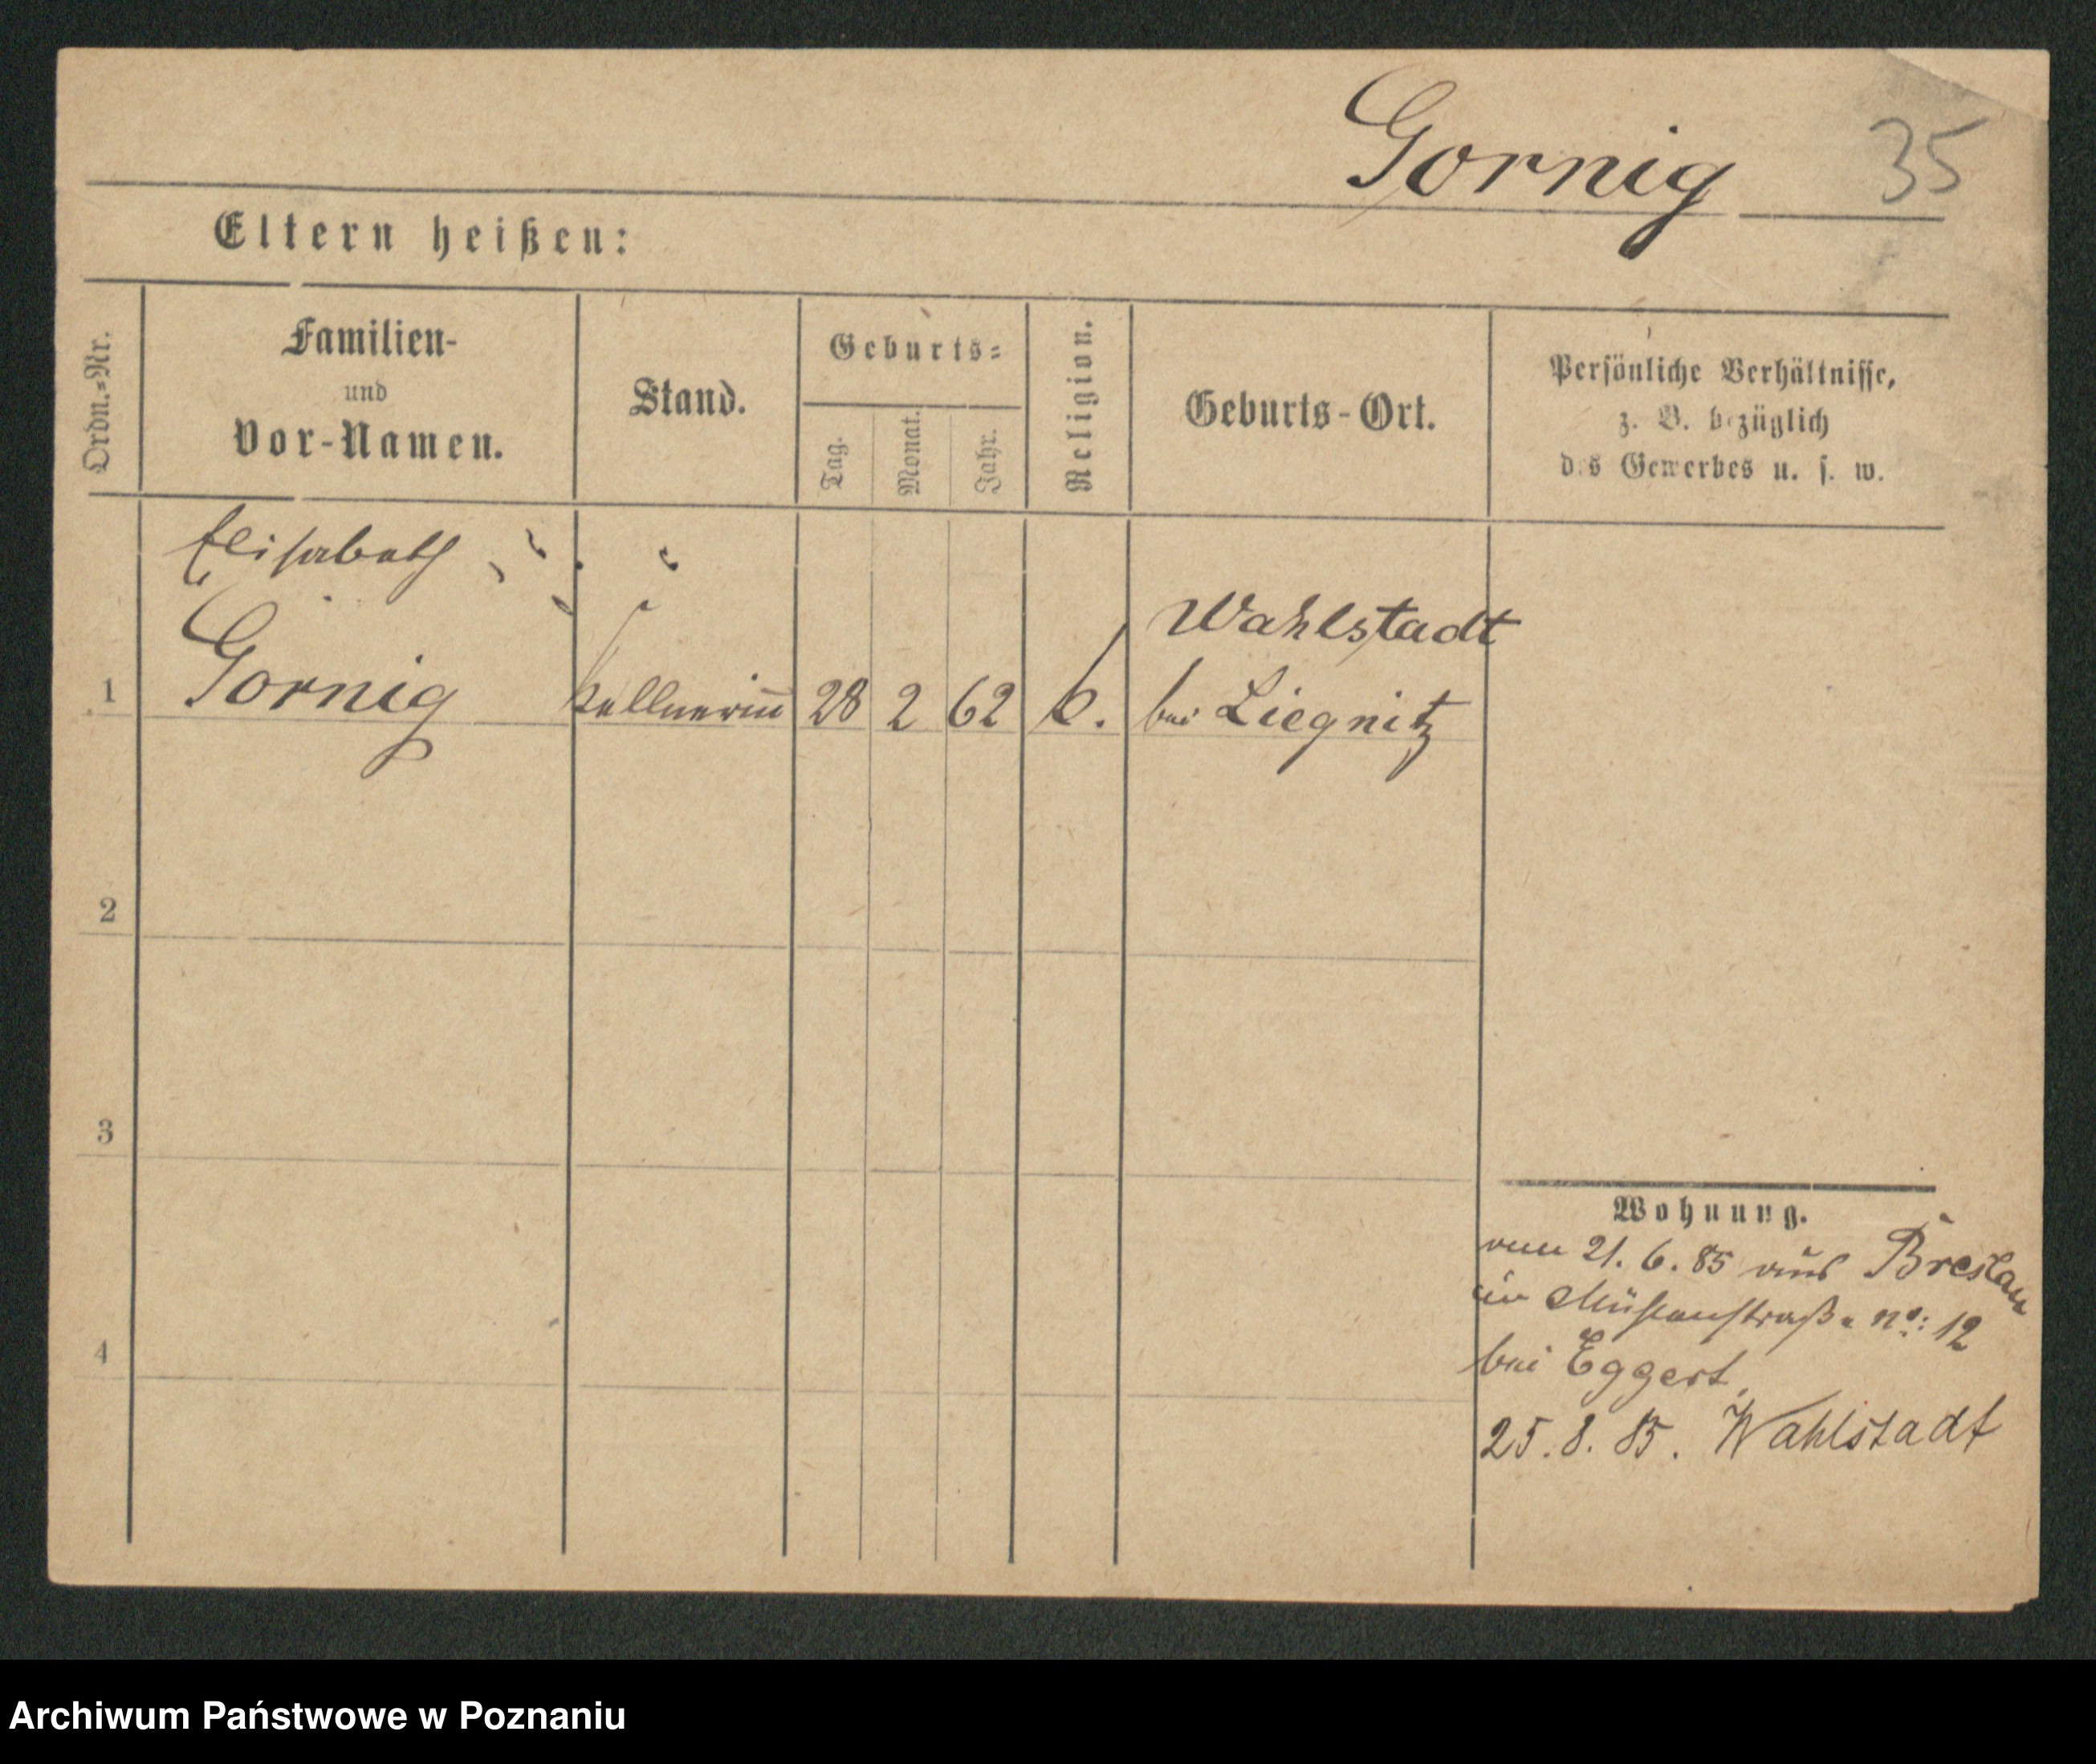 Gornig 35
Eltern heißen:
Ordn.=Nr.
Familien-
und
Vor-Namen.
Stand.
Geburts=
Tag.
Monat.
Jahr.
Religion.
Geburts-Ort.
Persönliche Verhältnisse,
z. B. bezüglich
des Gewerbes u. s. w.
Elisabeth
1 Gornig Kellnerin 28 2 62 k. Wahlstadt
bei Liegnitz
2
3
4
Wohnung.
vom 21. 6. 85 aus Breslau
in Mühlenstraße No: 12
bei Eggert,
25. 8. 85. Wahlstadt
Archiwum Państwowe w Poznaniu